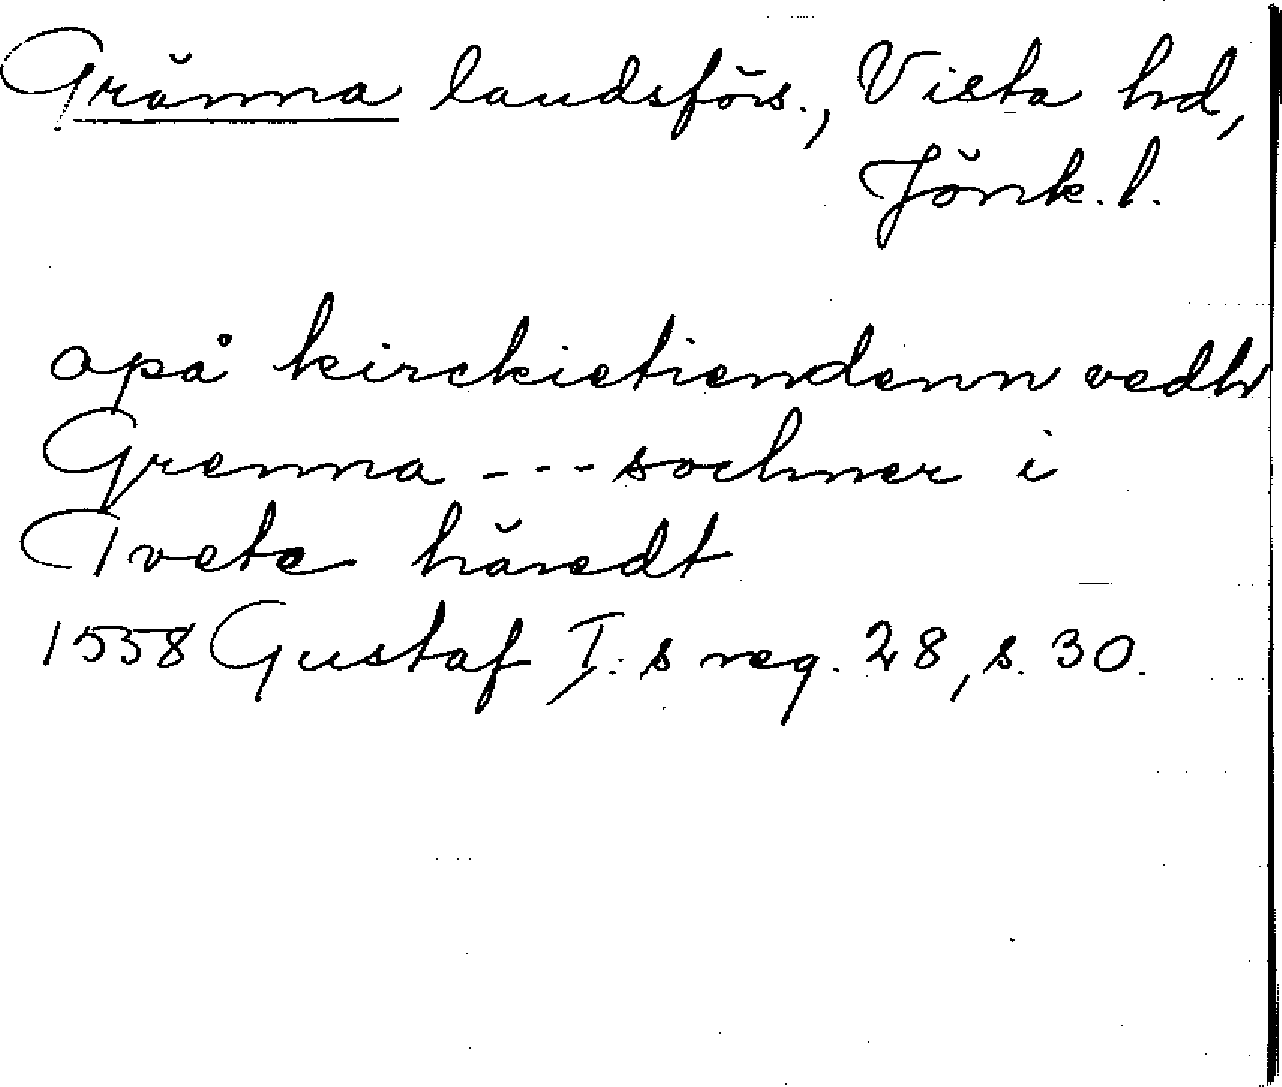 Gränna landsförs., Vista hd,
Jönk. l.
apå kirckietiendenn vedh
Grenna - - - sochner i
Tveta häredt
1558 Gustaf I:s reg. 28, s. 30.